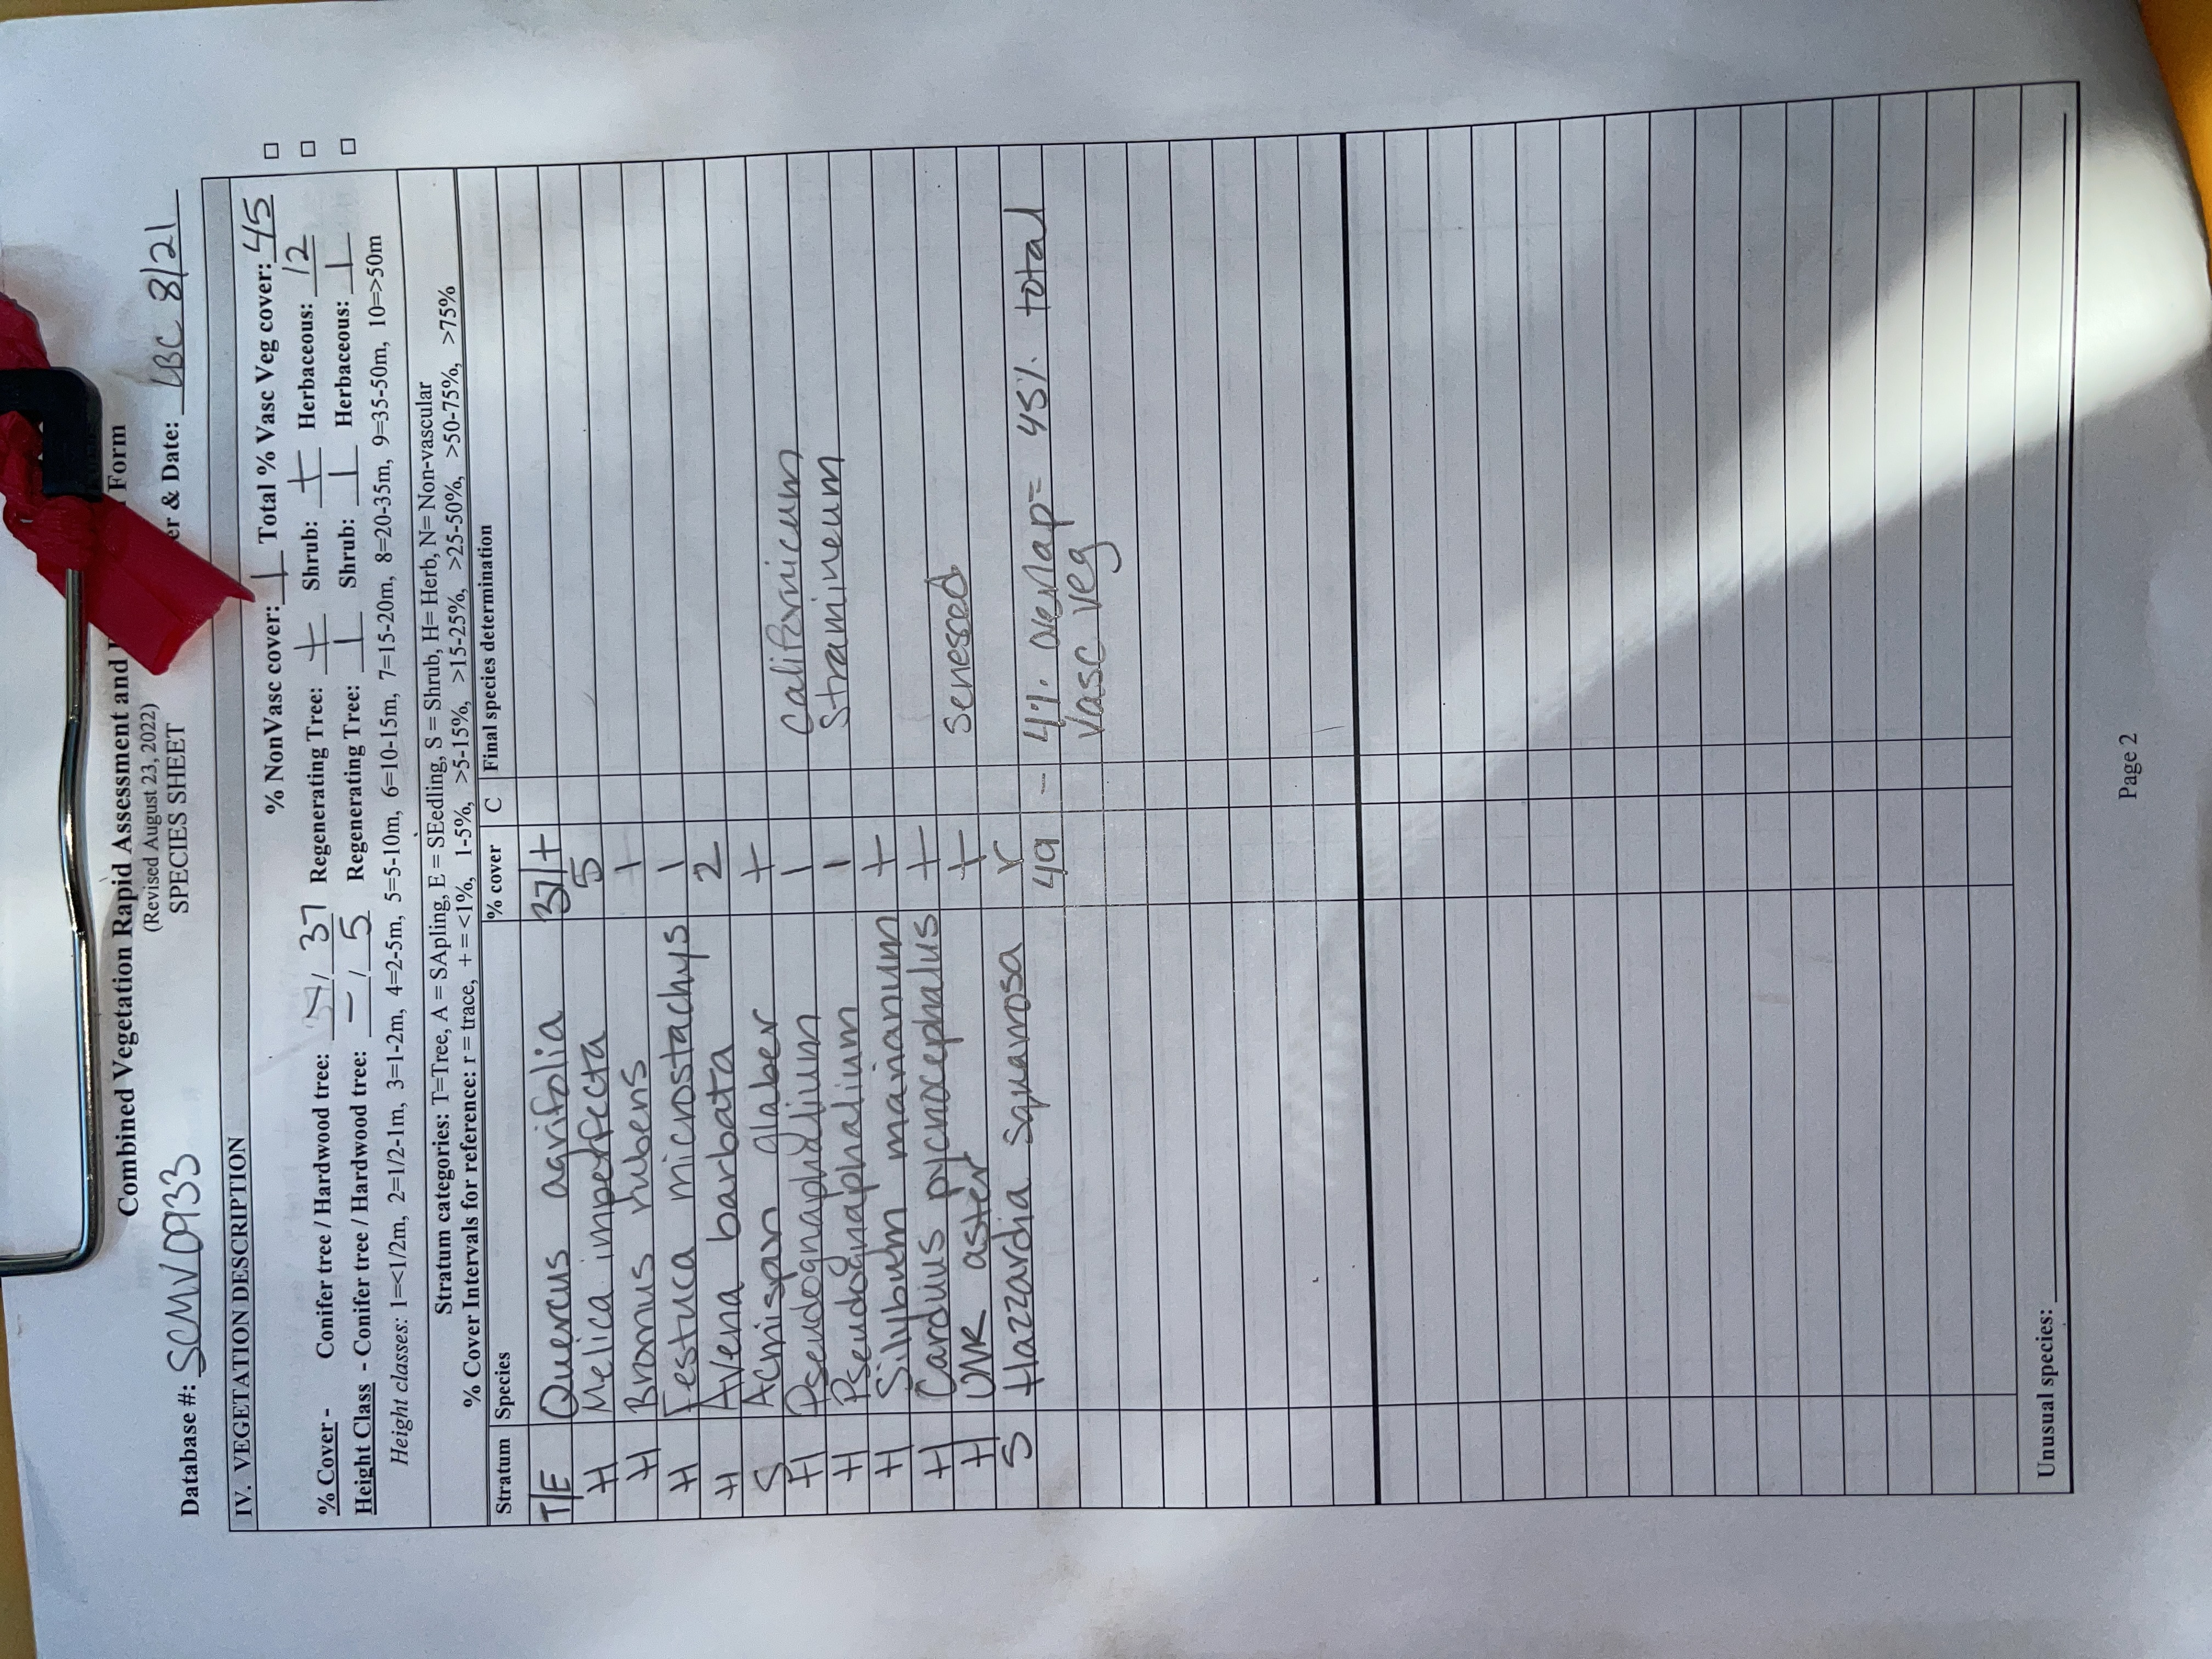 Combined Vegetation Rapid Assessment and Form
(Revised August 23, 2022)
SPECIES SHEET
Database #: SCMV0933 er & Date: LBC 8/21
IV. VEGETATION DESCRIPTION
% NonVasc cover: 1 Total % Vasc Veg cover: 45 □
% Cover - Conifer tree / Hardwood tree: / 37 Regenerating Tree: + Shrub: + Herbaceous: 12 □
Height Class - Conifer tree / Hardwood tree: - / 5 Regenerating Tree: 1 Shrub: 1 Herbaceous: 1 □
Height classes: 1=<1/2m, 2=1/2-1m, 3=1-2m, 4=2-5m, 5=5-10m, 6=10-15m, 7=15-20m, 8=20-35m, 9=35-50m, 10=>50m
Stratum categories: T=Tree, A = SApling, E = SEedling, S = Shrub, H= Herb, N= Non-vascular
% Cover Intervals for reference: r = trace, + = <1%, 1-5%, >5-15%, >15-25%, >25-50%, >50-75%, >75%
Stratum Species % cover C Final species determination
T/E Quercus agrifolia 37/+
H Melica imperfecta 5
H Bromus rubens 1
H Festuca microstachys 1
H Avena barbata 2
S Acmispon glaber +
H Pseudognaphalium 1 californicum
H Pseudognaphalium 1 stramineum
H Silybum marianum +
H Carduus pycnocephalus +
H UNK aster + senesced
S Hazzardia squamosa r
49 - 4% overlap = 45% total
vasc veg
Unusual species:
Page 2